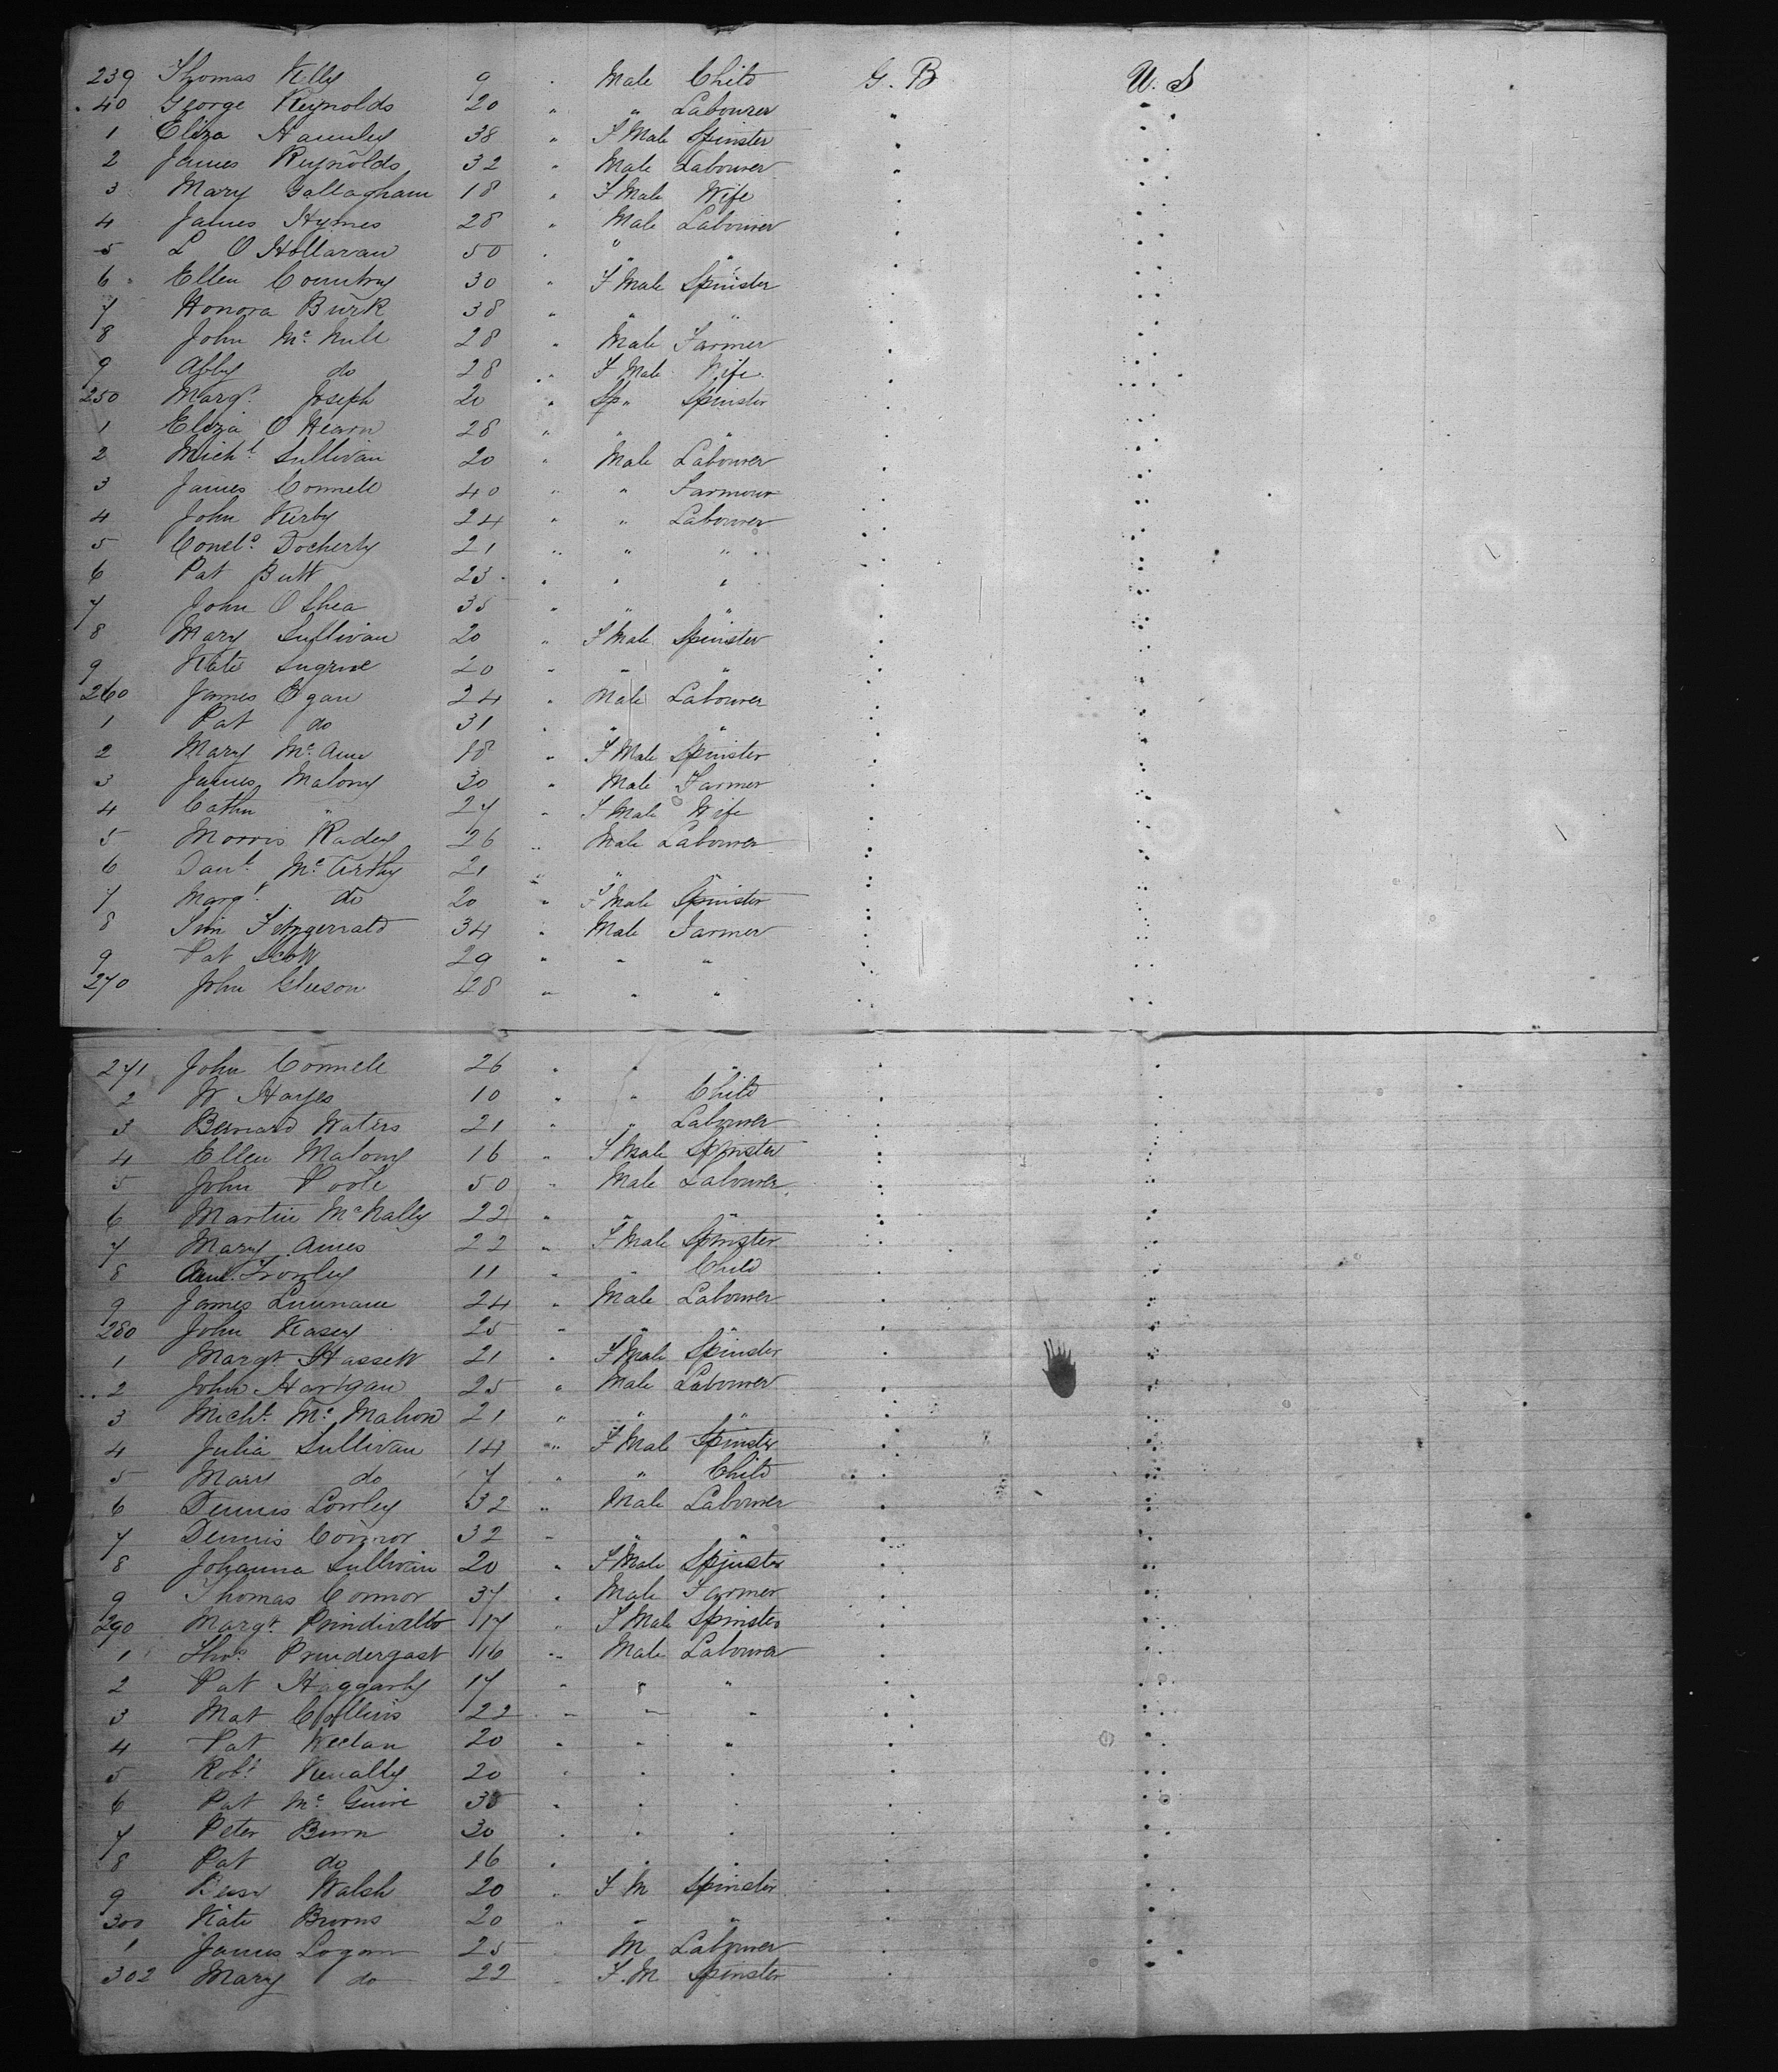 239 Thomas Kelly 9 " Male Child G. B U. S
40 George Reynolds 20 " " Labourer " "
1 Eliza Haunley 38 " F Male Spinster " "
2 James Reynolds 32 " Male Labourer " "
3 Mary Gallagham 18 " F Male Wife " "
4 James Hymes 28 " Male Labourer " "
5 L O Hollaran 50 " " " " "
6 Ellen Country 30 " F Male Spinster " "
7 Honora Burk 38 " " " " "
8 John Mc Null 28 " Male Farmer " "
9 Abby do 28 " F Male Wife " "
250 Margt. Joseph 20 " Sp " Spinster " "
1 Eliza O Hearn 28 " " " " "
2 Michl. Sullivan 20 " Male Labourer " "
3 James Connell 40 " " Farmour " "
4 John Kirby 24 " " Labourer " "
5 Docherty 21 " " " " "
6 Pat Butt 23 " " " " "
7 John O Shea 35 " " " " "
8 Mary Sullivan 20 " F Male Spinster " "
9 Kate Sugrue 20 " " " " "
260 James Egan 24 " Male Labourer " "
1 Pat do 31 " " " " "
2 Mary Mc Ann 18 " F Male Spinster " "
3 James Malony 30 " Male Farmer " "
4 Cathn " 27 " F Male Wife " "
5 Morris Radey 26 " Male Labourer " "
6 Danl. Mc Carthy 21 " " " " "
7 Margt. do 20 " F Male Spinster " "
8 Tim Fitzgerrald 34 " Male Farmer " "
9 Pat Scott 29 " " " " "
270 John Gleeson 28 " " " " "
271 John Connell 26 " " " " "
2 W Hayes 10 " " Child " "
3 Bernard Waters 21 " " Labourer " "
4 Ellen Malony 16 " F Male Spinster " "
5 John Poole 50 " Male Labourer " "
6 Martin Mc Nally 22 " " " " "
7 Mary Ames 22 " F Male Spinster " "
8 Ann Frowley 11 " " Child " "
9 James Linnane 24 " Male Labourer " "
280 John Kasey 25 " " " " "
1 Margt Hassett 21 " F Male Spinster " "
2 John Harigan 25 " Male Labourer " "
3 Michl. Mc Mahon 21 " " " " "
4 Julia Sullivan 14 " F Male Spinster " "
5 Mary do 7 " " Child " "
6 Dennis Cowley 32 " Male Labourer " "
7 Dennis Connor 32 " " " " "
8 Johanna Sullivan 20 " F Male Spinster " "
9 Thomas Connor 37 " Male Farmer " "
290 Margt. 17 " F Male Spinster " "
1 Thos. Prendergast 16 " Male Labourer " "
2 Pat Haggarty 17 " " " " "
3 Mat Collins 22 " " " " "
4 Pat Weelan 20 " " " " "
5 Robt. Kenally 20 " " " " "
6 Pat Mc Guire 35 " " " " "
7 Peter Burn 30 " " " " "
8 Pat do 16 " " " " "
9 Walsh 20 " F M Spinster " "
300 Kate Burns 20 " " " " "
1 James Logan 25 " M Labourer " "
302 Mary do 22 " F. M Spinster " "